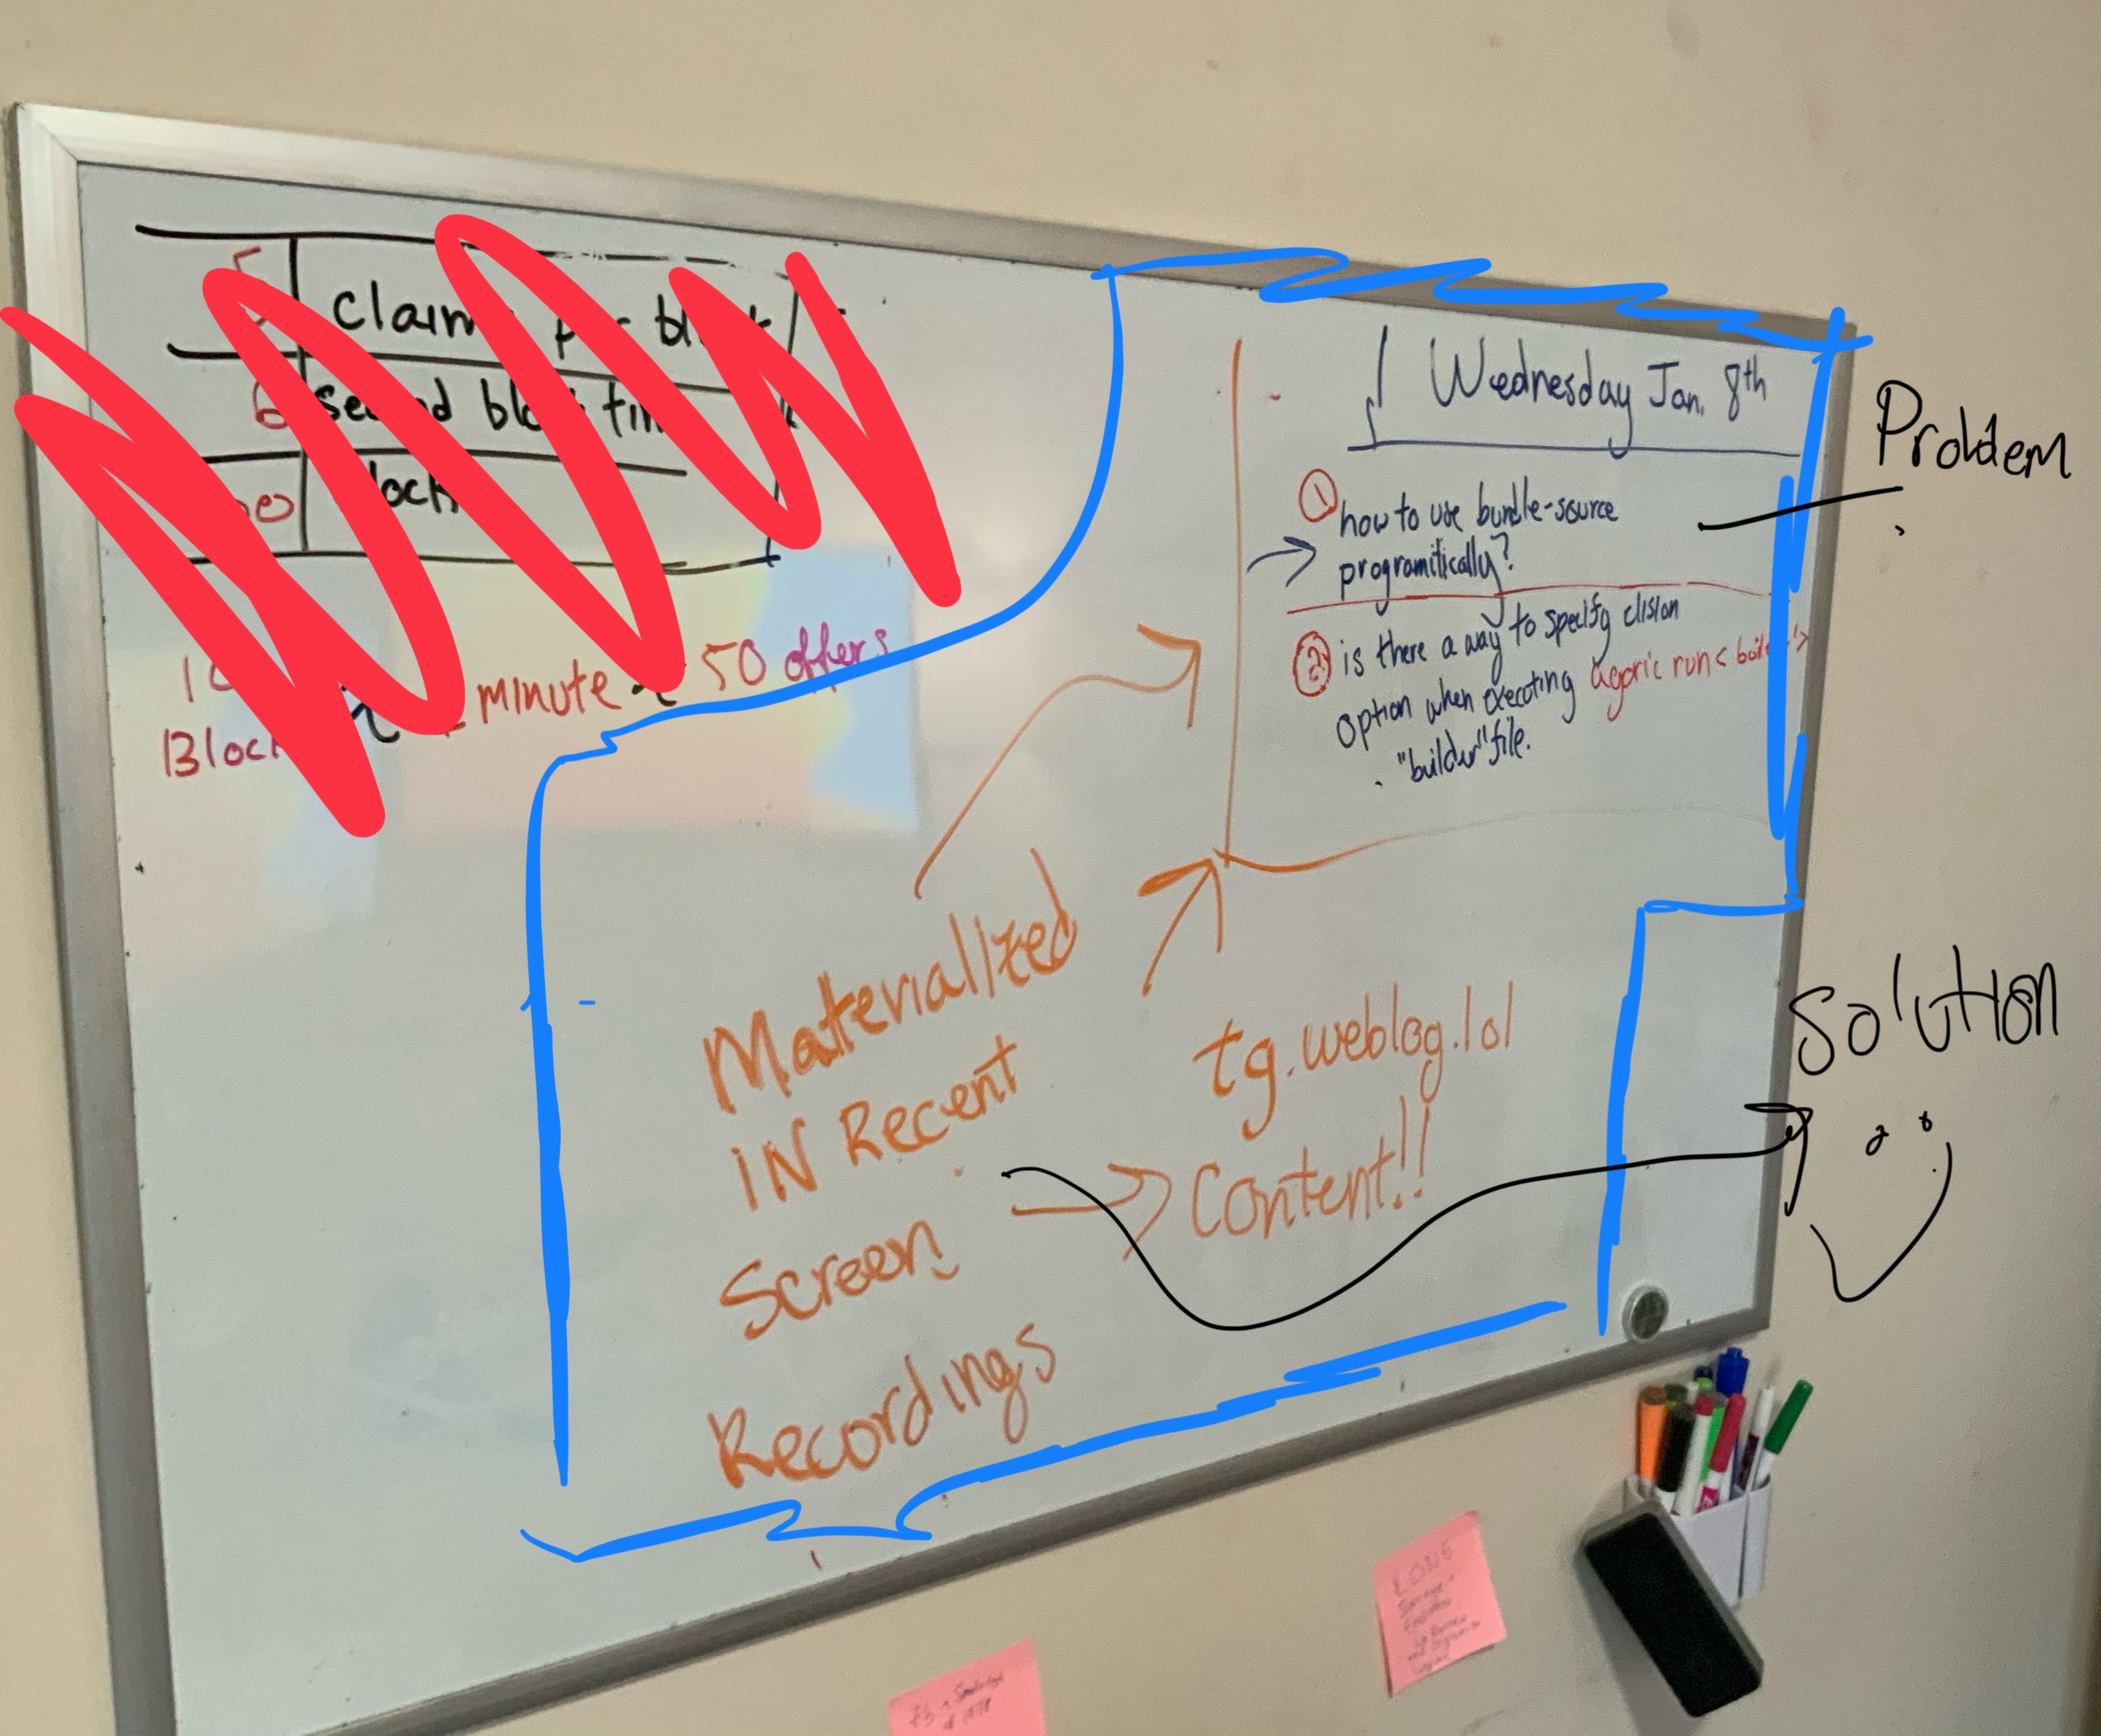 5
claims per block
6 second block time
blocks
Block
minute 50 offers
Wednesday Jan. 8th
① how to use bundle-source
programitically?
② is there a way to specify elision
option when executing agoric run <
"builder" file.
Problem
Materialized
IN Recent
Screen
Recordings
tg.weblog.lol
Content!!
Solution
LONE